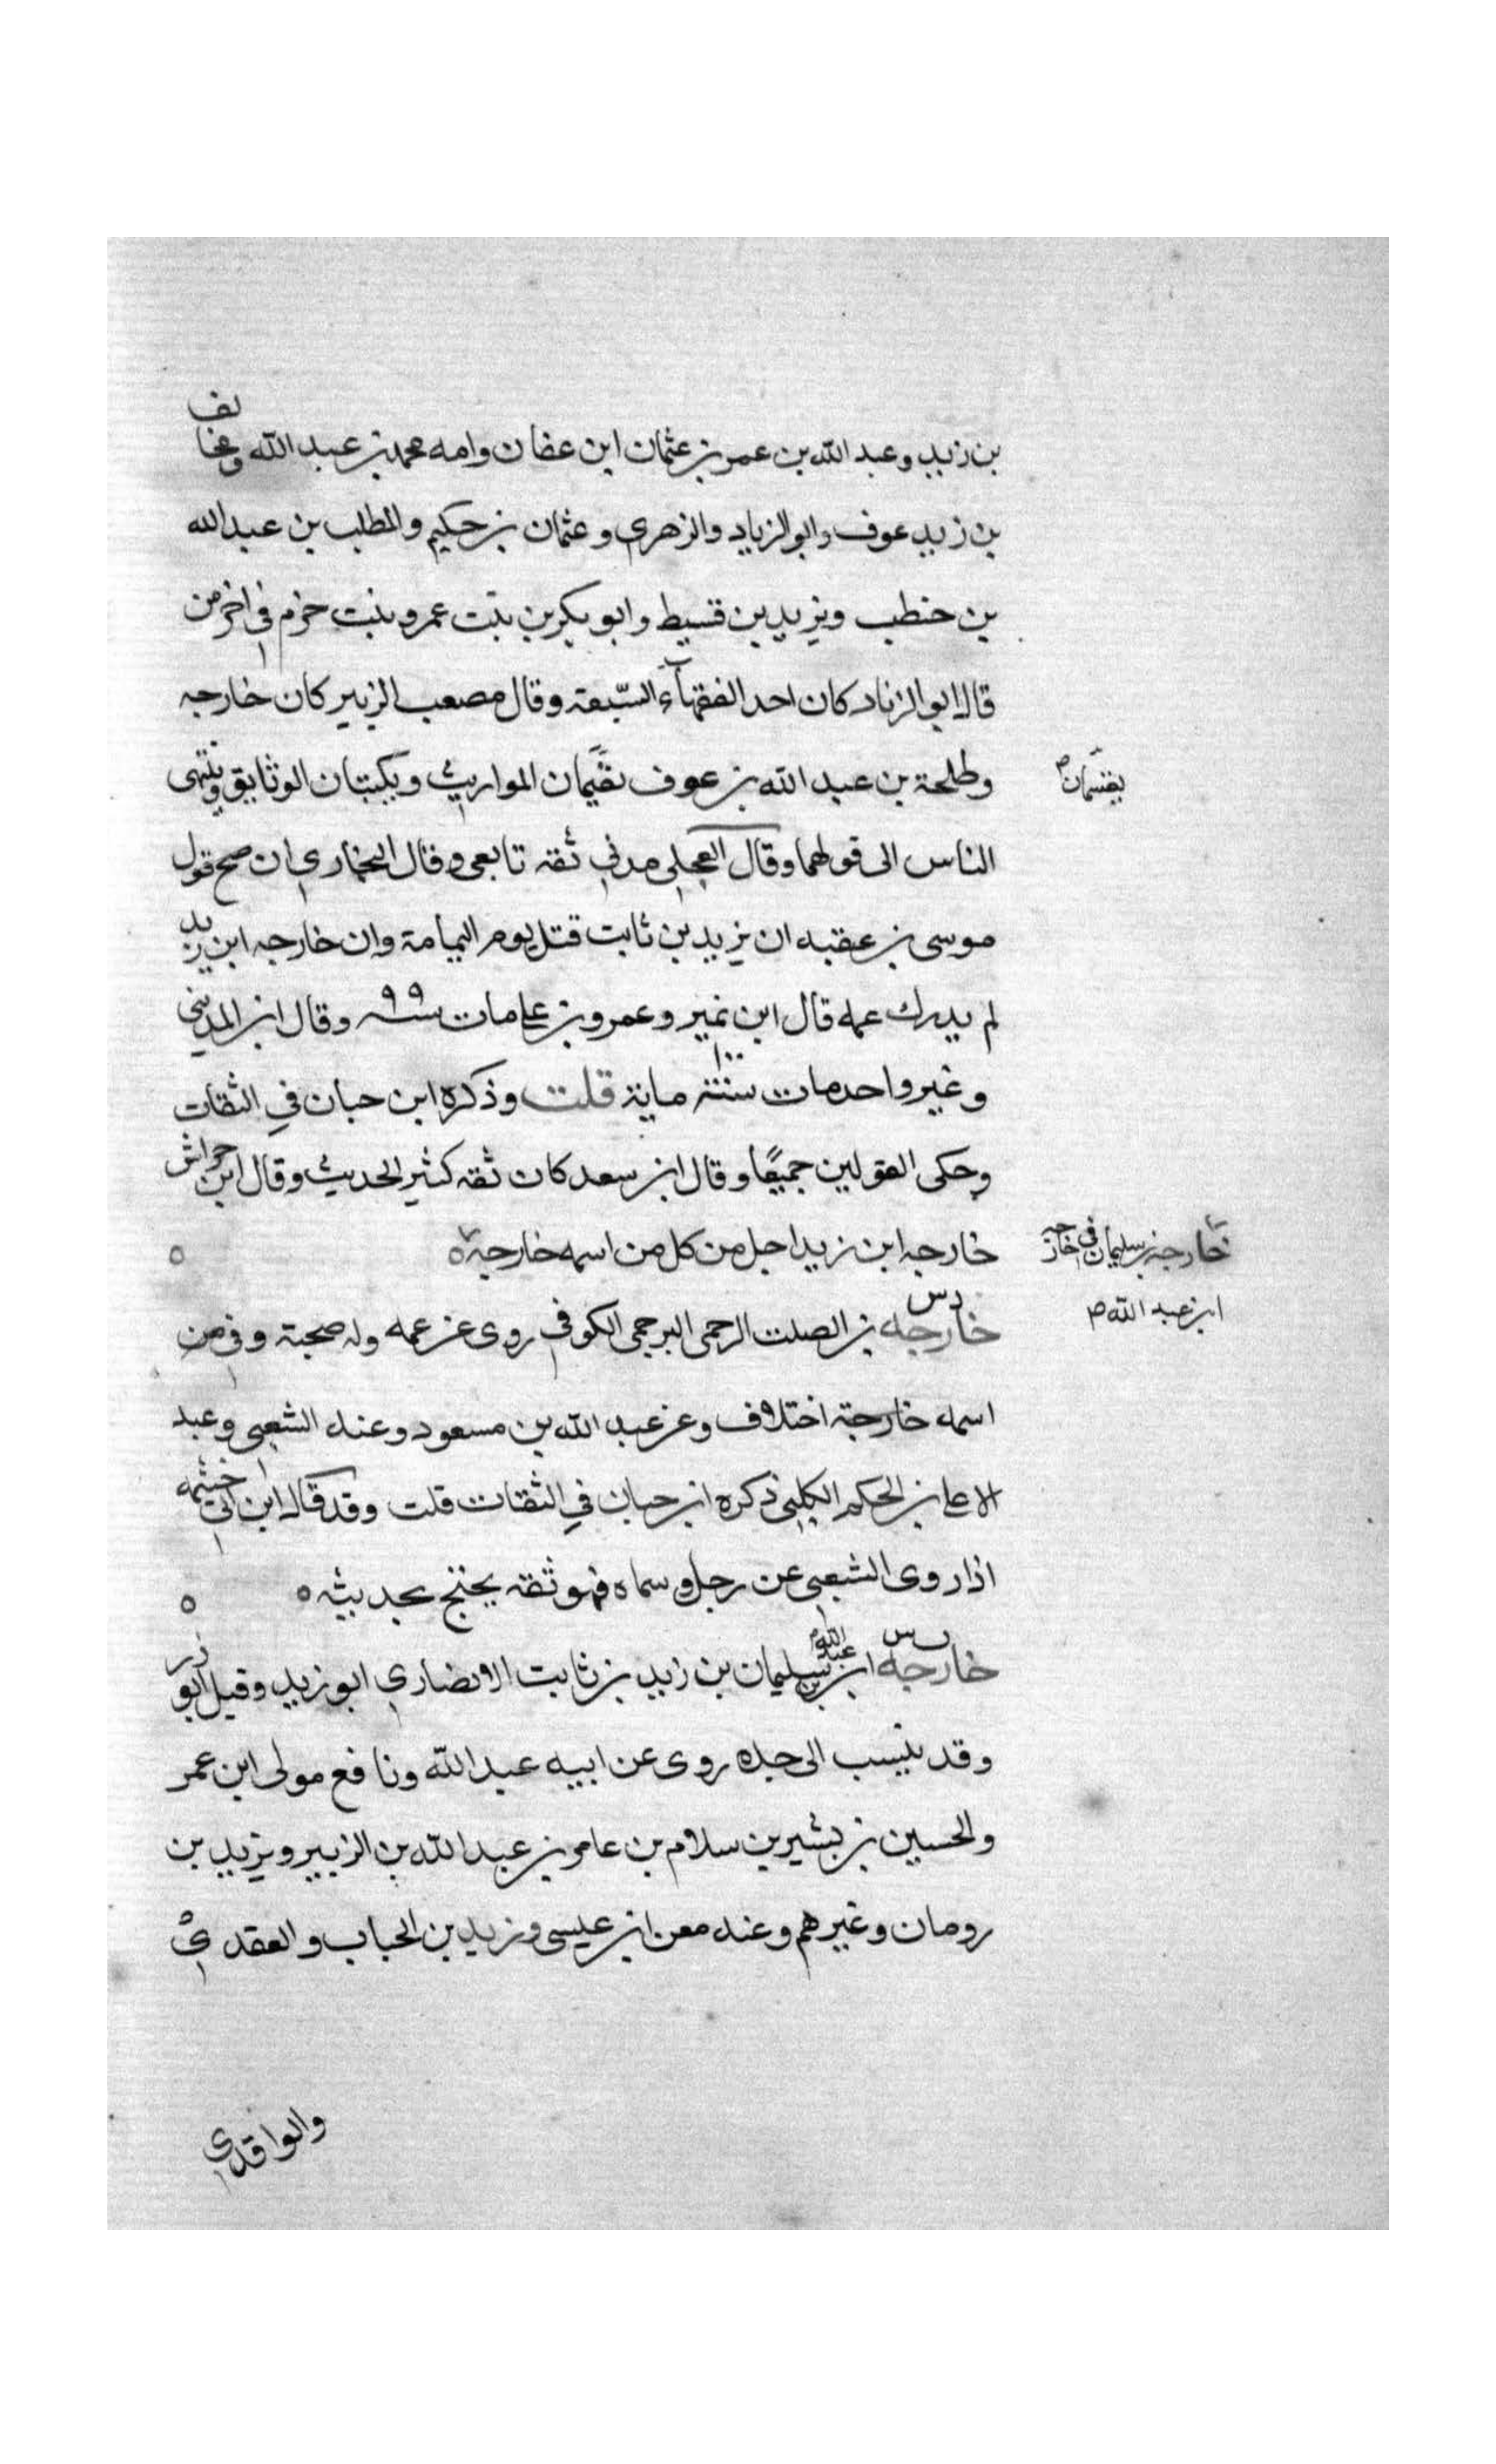 بن زيد وعبد الله بن عمر بن عثمان ابن عفان وامه محمد بن عبد الله ومخالف
بن زيد عوف وابو الزياد والزهري وعثمان بن حكيم والمطلب بن عبد الله
بن حنطب ويزيد بن قسيط وابو بكر بن بنت عمرو بنت حزم في اخرمن
قال ابو الزناد كان احد الفقهاء السبعة وقال مصعب الزبير كان خارجه
وطلحة بن عبد الله بن عوف يقسمان المواريث ويكتبان الوثايق وينتهى
يقتسمان م
الناس الى قولهما وقال العجلي مدني ثقه تابعى وقال البخاري ان صح قول
موسى بن عقبه ان يزيد بن ثابت قتل يوم اليمامة وان خارجه ابن زيد
لم يدرك عمه قال ابن نمير وعمرو بن على مات سنه ٩٩ وقال ابن المديني
وغير واحد مات سنة ١٠٠ ماية قلت وذكره ابن حبان في الثقات
وحكى القولين جميعًا وقال ابن سعد كان ثقه كثير الحديث وقال ابن خراش
خارجه ابن زيد اجل من كل من اسمه خارجة ه
خارجة بن سليمان في خارجه
ابن عبد الله م
د س
خارجه بن الصلت الرجمى البرجمى الكوفي روى عن عمه وله صحبة وفى من
اسمه خارجة اختلاف وعن عبد الله بن مسعود وعنه الشعبي وعبد
الاعلى بن الحكم الكلبي ذكره ابن حبان في الثقات قلت وقد قال ابن ابي خثيمه
اذا روى الشعبي عن رجل وسماه فهو ثقه يحتج بحديثه ه
خارجه ابن عبد الله بن سليمان بن زيد بن ثابت الانصاري ابو زيد وقيل ابو ذر
وقد ينسب الى جده روى عن ابيه عبد الله ونافع مولى ابن عمر
والحسين بن بشير بن سلام بن عامر بن عبد الله بن الزبير ويزيد بن
رومان وغيرهم وعنه معن ابن عيسى وزيد بن الحباب والعقدي
والواقدي